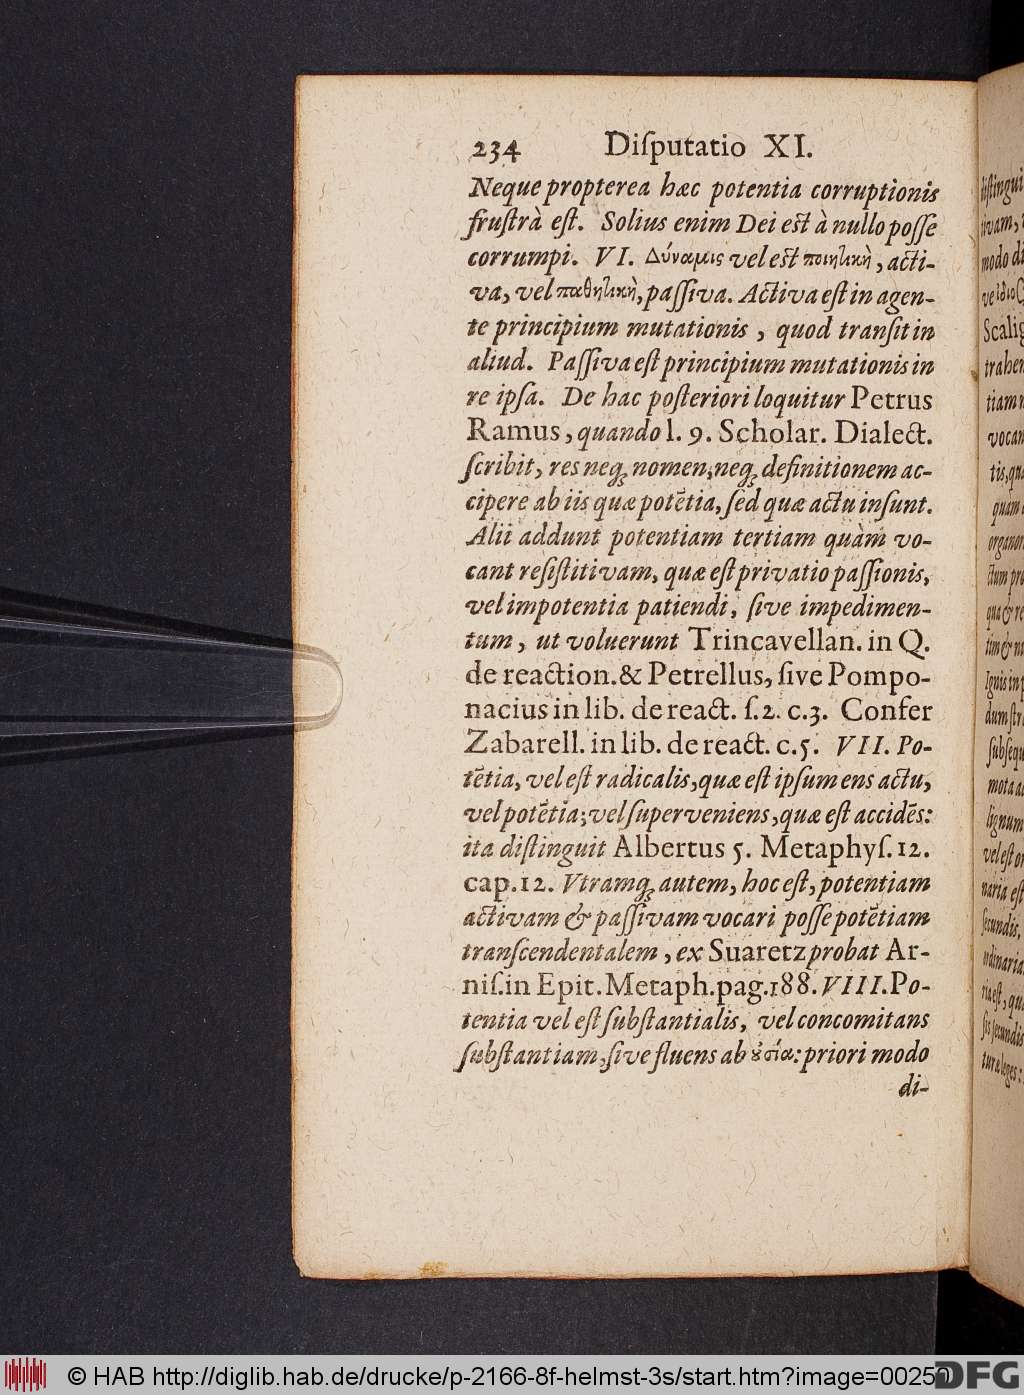 234 Diſputatio XI.
Neque propterea hæc potentia corruptionis
fruſtrà eſt. Solius enim Dei eſt à nullo poſſe
corrumpi. VI. Δύναμις vel eſt ποιητικὴ, acti-
va, vel παθητικὴ, paſſiva. Activa eſt in agen-
te principium mutationis, quod tranſit in
aliud. Paſſiva eſt principium mutationis in
re ipſa. De hac poſteriori loquitur Petrus
Ramus, quando l. 9. Scholar. Dialect.
ſcribit, res neq; nomen, neq; definitionem ac-
cipere ab iis quæ potētia, ſed quæ actu inſunt.
Alii addunt potentiam tertiam quàm vo-
cant reſiſtitivam, quæ eſt privatio paſſionis,
vel impotentia patiendi, ſive impedimen-
tum, ut voluerunt Trincavellan. in Q.
de reaction. & Petrellus, ſive Pompo-
nacius in lib. de react. ſ. 2. c. 3. Confer
Zabarell. in lib. de react. c. 5. VII. Po-
tētia, vel eſt radicalis, quæ eſt ipſum ens actu,
vel potētia; vel ſuperveniens, quæ eſt accidēs:
ita diſtinguit Albertus 5. Metaphyſ. 12.
cap. 12. Vtramq; autem, hoc eſt, potentiam
activam & paſſivam vocari poſſe potētiam
tranſcendentalem, ex Suaretz probat Ar-
niſ. in Epit. Metaph. pag. 188. VIII. Po-
tentia vel eſt ſubſtantialis, vel concomitans
ſubſtantiam, ſive fluens ab ȣ̓σίᾳ: priori modo
di-
modo di
Scalig
trahen
vocan
quam
ſubſequ
mota a
lignum
vel eſt or
naria eſt
ſecundis,
© HAB http://diglib.hab.de/drucke/p-2166-8f-helmst-3s/start.htm?image=00250
DFG